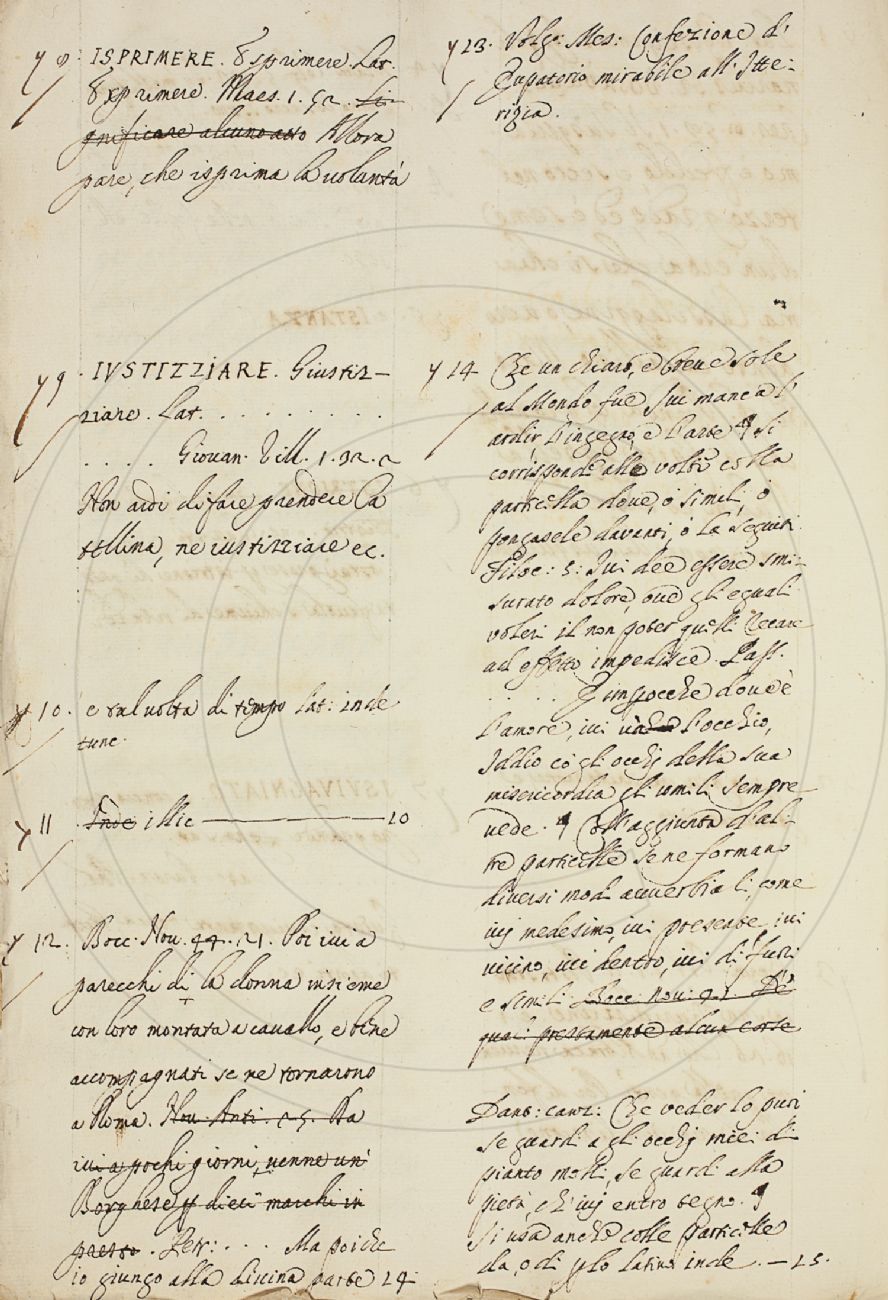 y 8. ISPRIMERE. Esprimere. Lat.
Exprimere. Maes. 1. 52. Si-
gnificare alcuno atto Allora
pare, che isprima la volontà
y 9. IVSTIZZIARE. Giustiz-
ziare. Lat. . . . . . . . . .
. . . . Giovan. Vill. 1. 32. 2
Non ardì di fare prendere Ca
tellina, ne iustizziare ec.
y 10. e talvolta di tempo Lat: inde
tunc
y 11 Inde illic — 10
y 12. Bocc. Nov. 44. 21. Poi ivi a
parecchi dì la donna insieme
con loro montata a cavallo, e bene
accompagnati se ne tornarono
a Roma. Nov. Anti. 25. Da
ivi a pochi giorni, venne un'
Borghese p dieci marchi in
presto. Petr: . . . Ma poiche
io giungo alla divina parte 14.
y 13. Volg: Mes: Confezione d'
Eupatorio mirabile all' Itte-
rizia.
y 14 Che un chiaro, e breve sole
al Mondo fue, Ivi manca l'
ardir, l'ingegno, e l'arte ¶ Si
corrisponde alle volte colla
particella dove, o simili, o
pongasele davanti, o la seguiti
Filoc: 5: Ivi dee essere smi-
surato dolore, ove gli eguali
voleri il non poter quelli recare
ad effetto impedisce. Pass.
. . . . E impocche dov'è
l'amore, ivi l'occhio,
Iddio cō gli occhj della sua
misericordia gli umili sempre
vede. ¶ Coll'aggiunta d'al-
tre particelle se ne formano
diversi modi avverbiali, come
ivj medesimo, ivi presente, ivi
vicino, ivi dentro, ivi di fuori
e simili. Bocc. nov: 41. De
quali prestamente alcun corse
Dant: canz: Che veder lo puoi
se guardi a gli occhj miei di
pianto molli, se guardi alla
pietà, ch'ivj entro tegno. ¶
Si usa anche colle particelle
da, o di p lo latino inde. — 15.